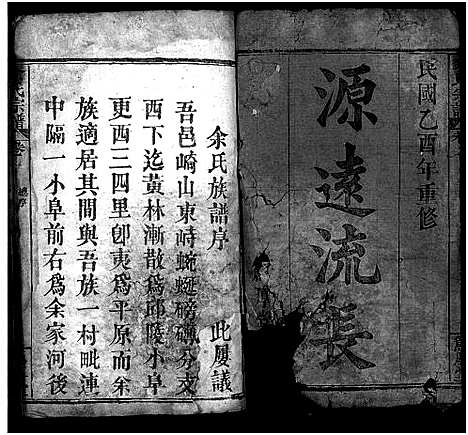 民國乙酉年重修
源遠流長
余氏族譜序
此屢議
吾邑崎山東峙蜿蜒磅礴分支
西下迄黃林漸散為邱陵小阜
更西三四里卽夷為平原而余
族適居其間與吾族一村毗連
中隔一小阜前右為余家河後
氏宗譜
總序